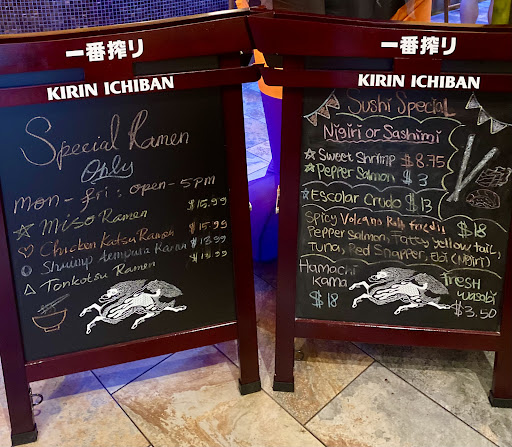 一番搾り
KIRIN ICHIBAN
Special Ramen
Only
Mon - Fri : open - 5pm
Miso Ramen $15.99
Chicken Katsu Ramen $15.99
Shrimp tempura Ramen $13.99
Tonkotsu Ramen
一番搾り
KIRIN ICHIBAN
Sushi Special
Nigiri or Sashimi
Sweet Shrimp $8.75
Pepper Salmon $3
Escolar Crudo $13
Spicy Volcano Roll $18
Pepper Salmon, Fatty Yellow tail,
Tuna, Red Snapper, Ebi (Nigiri)
Hamachi
Kama
$18
fresh
wasabi
$3.50